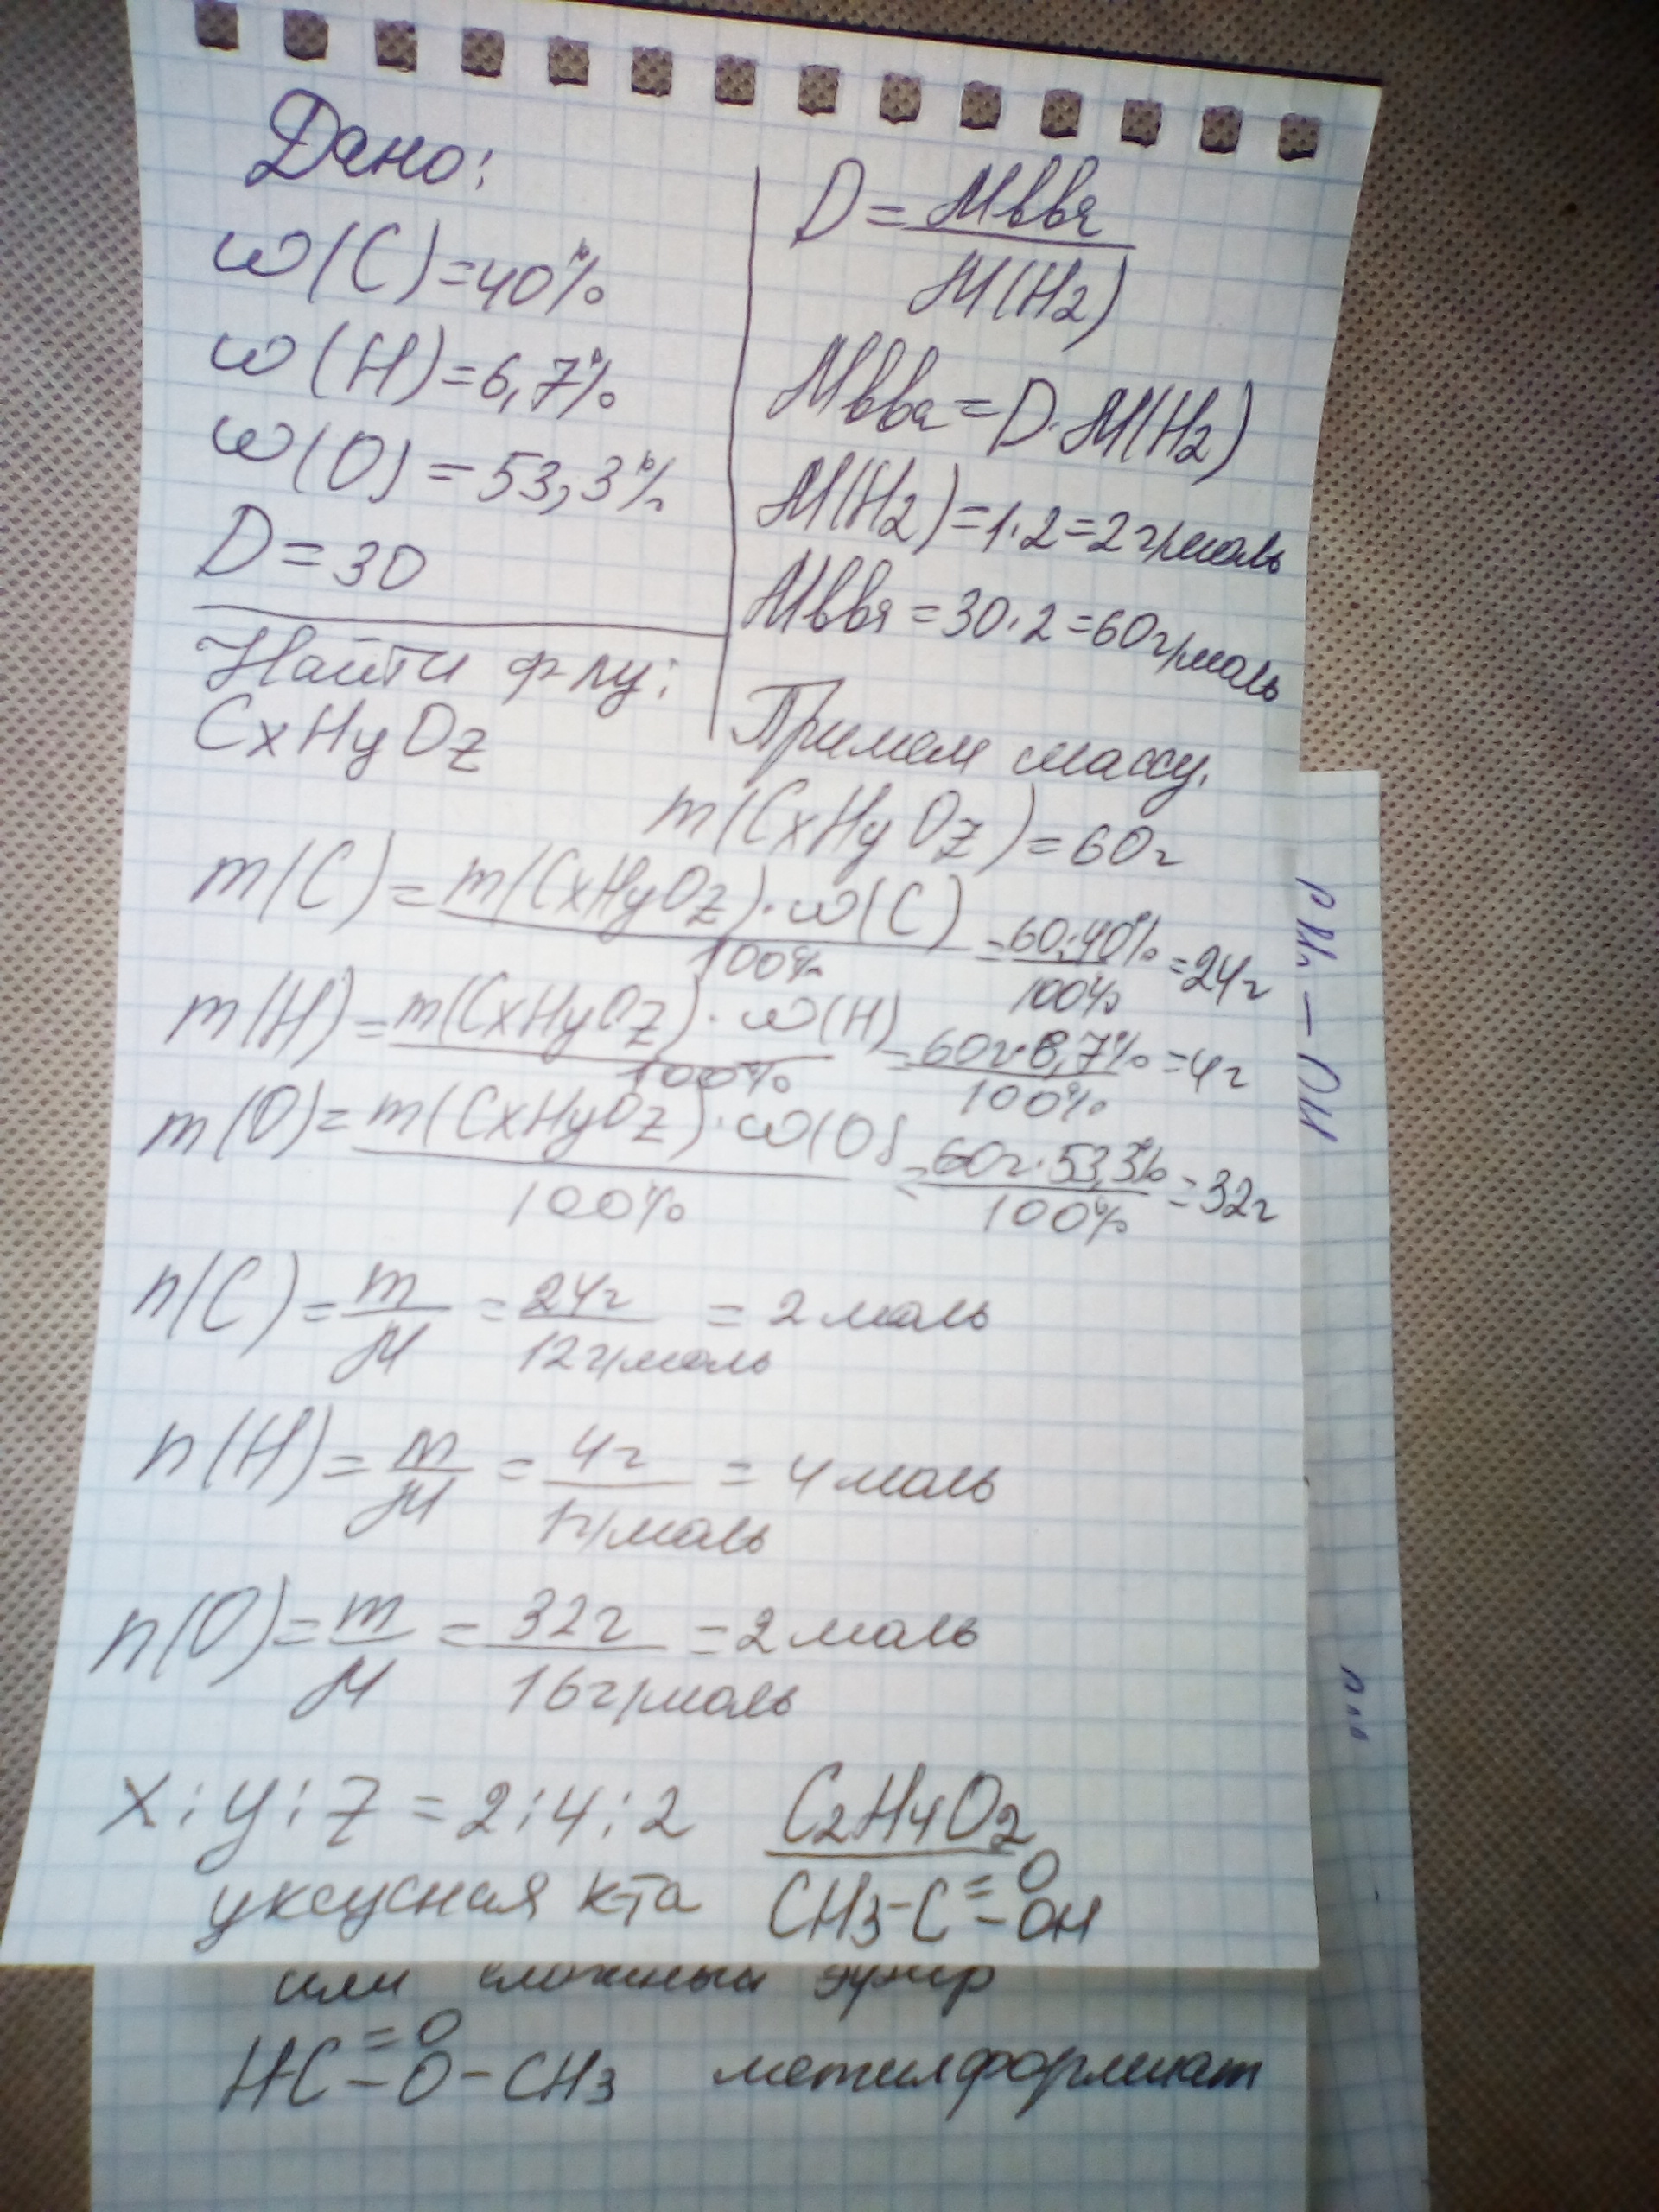 Дано:
ω(C)=40%
ω(H)=6,7%
ω(O)=53,3%
D=30
Найти ф-лу:
CxHyOz
D=Mвва/M(H2)
Mвва=D·M(H2)
M(H2)=1·2=2г/моль
Mввя=30·2=60г/моль
Примем массу.
m(CxHyOz)=60г
m(C)=m(CxHyOz)·ω(C)/100%=60·40%/100%=24г
m(H)=m(CxHyOz)·ω(H)/100%=60г·6,7%/100%=4г
m(O)=m(CxHyOz)·ω(O)/100%=60г·53,3%/100%=32г
n(C)=m/M=24г/12г/моль=2моль
n(H)=m/M=4г/1г/моль=4моль
n(O)=m/M=32г/16г/моль=2моль
x:y:z=2:4:2 C2H4O2
уксусная к-та CH3-C=O-OH
или сложный эфир
HC=O-O-CH3 метилформиат